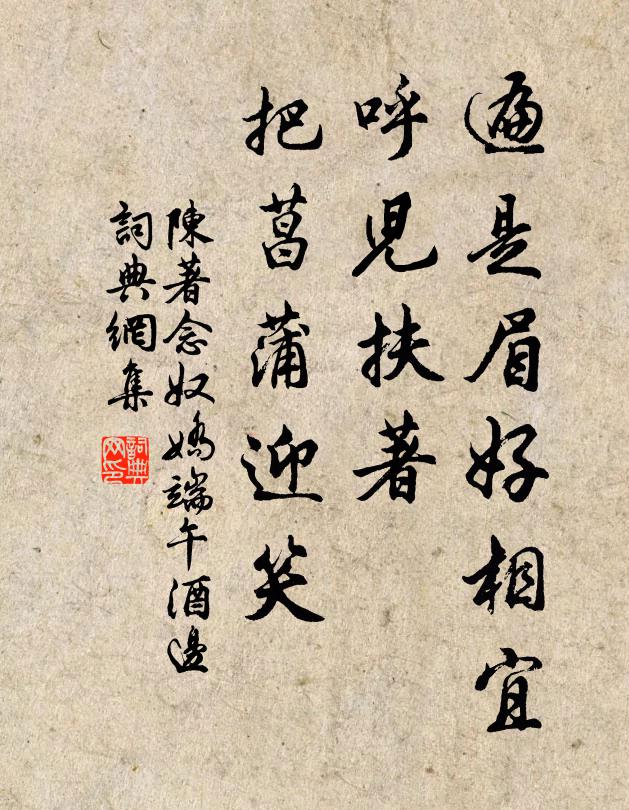 遍是眉好相宜
呼兒扶著
把菖蒲迎笑
陳著念奴嬌端午酒邊
詞典網集
詞典
网印